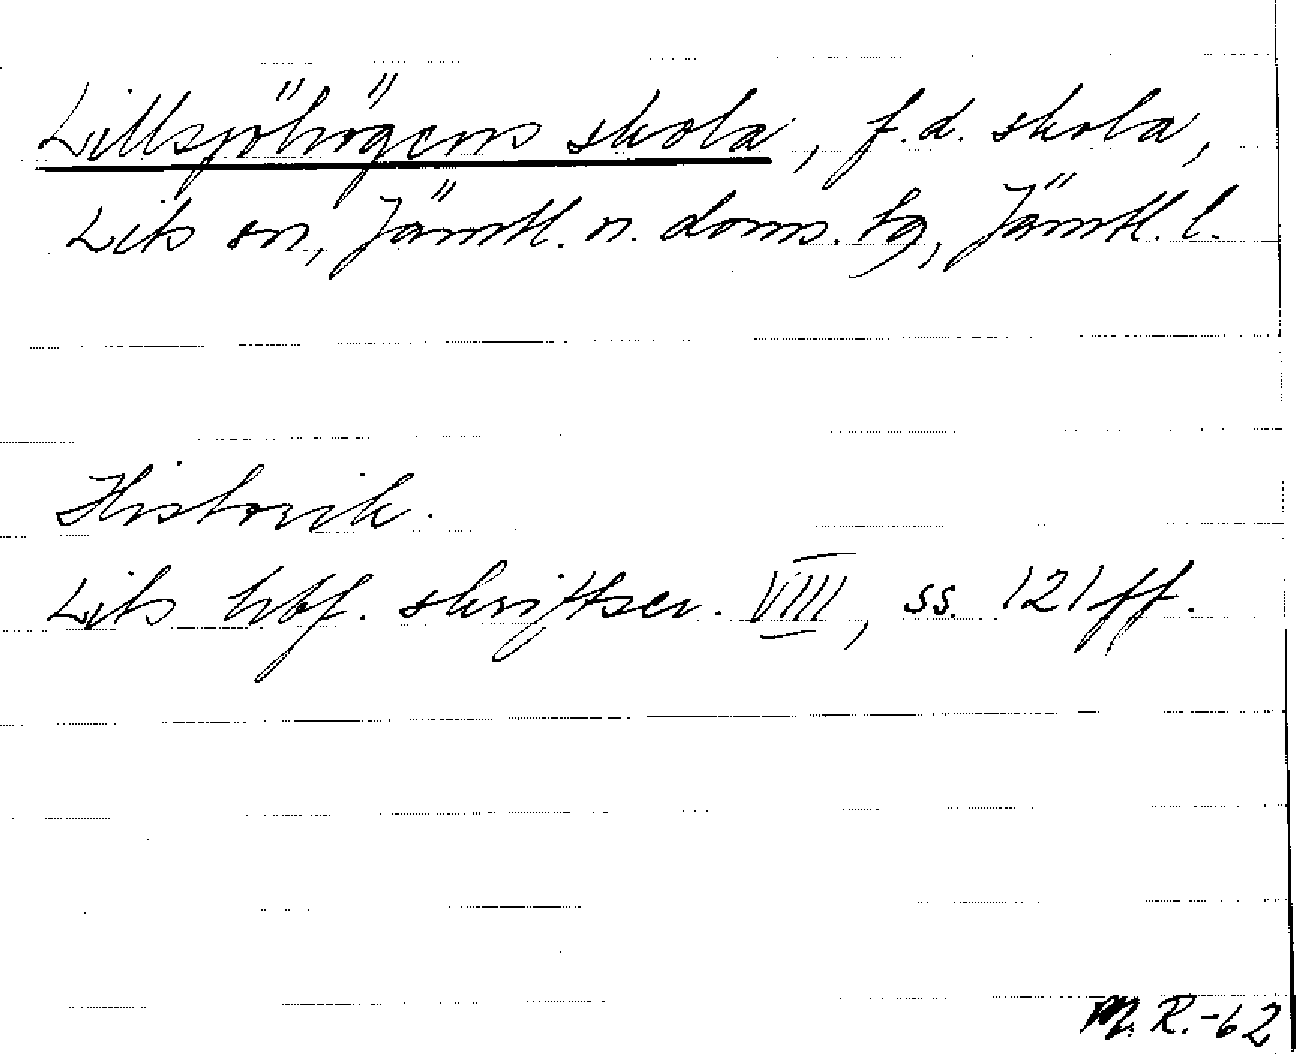 Lillsjöhögens skola, f.d. skola,
Lits sn, Jämtl. n. doms. tg, Jämtl. l.
Historik.
Lits hbf. skriftser. VIII, ss. 121 ff.
M. R. -62